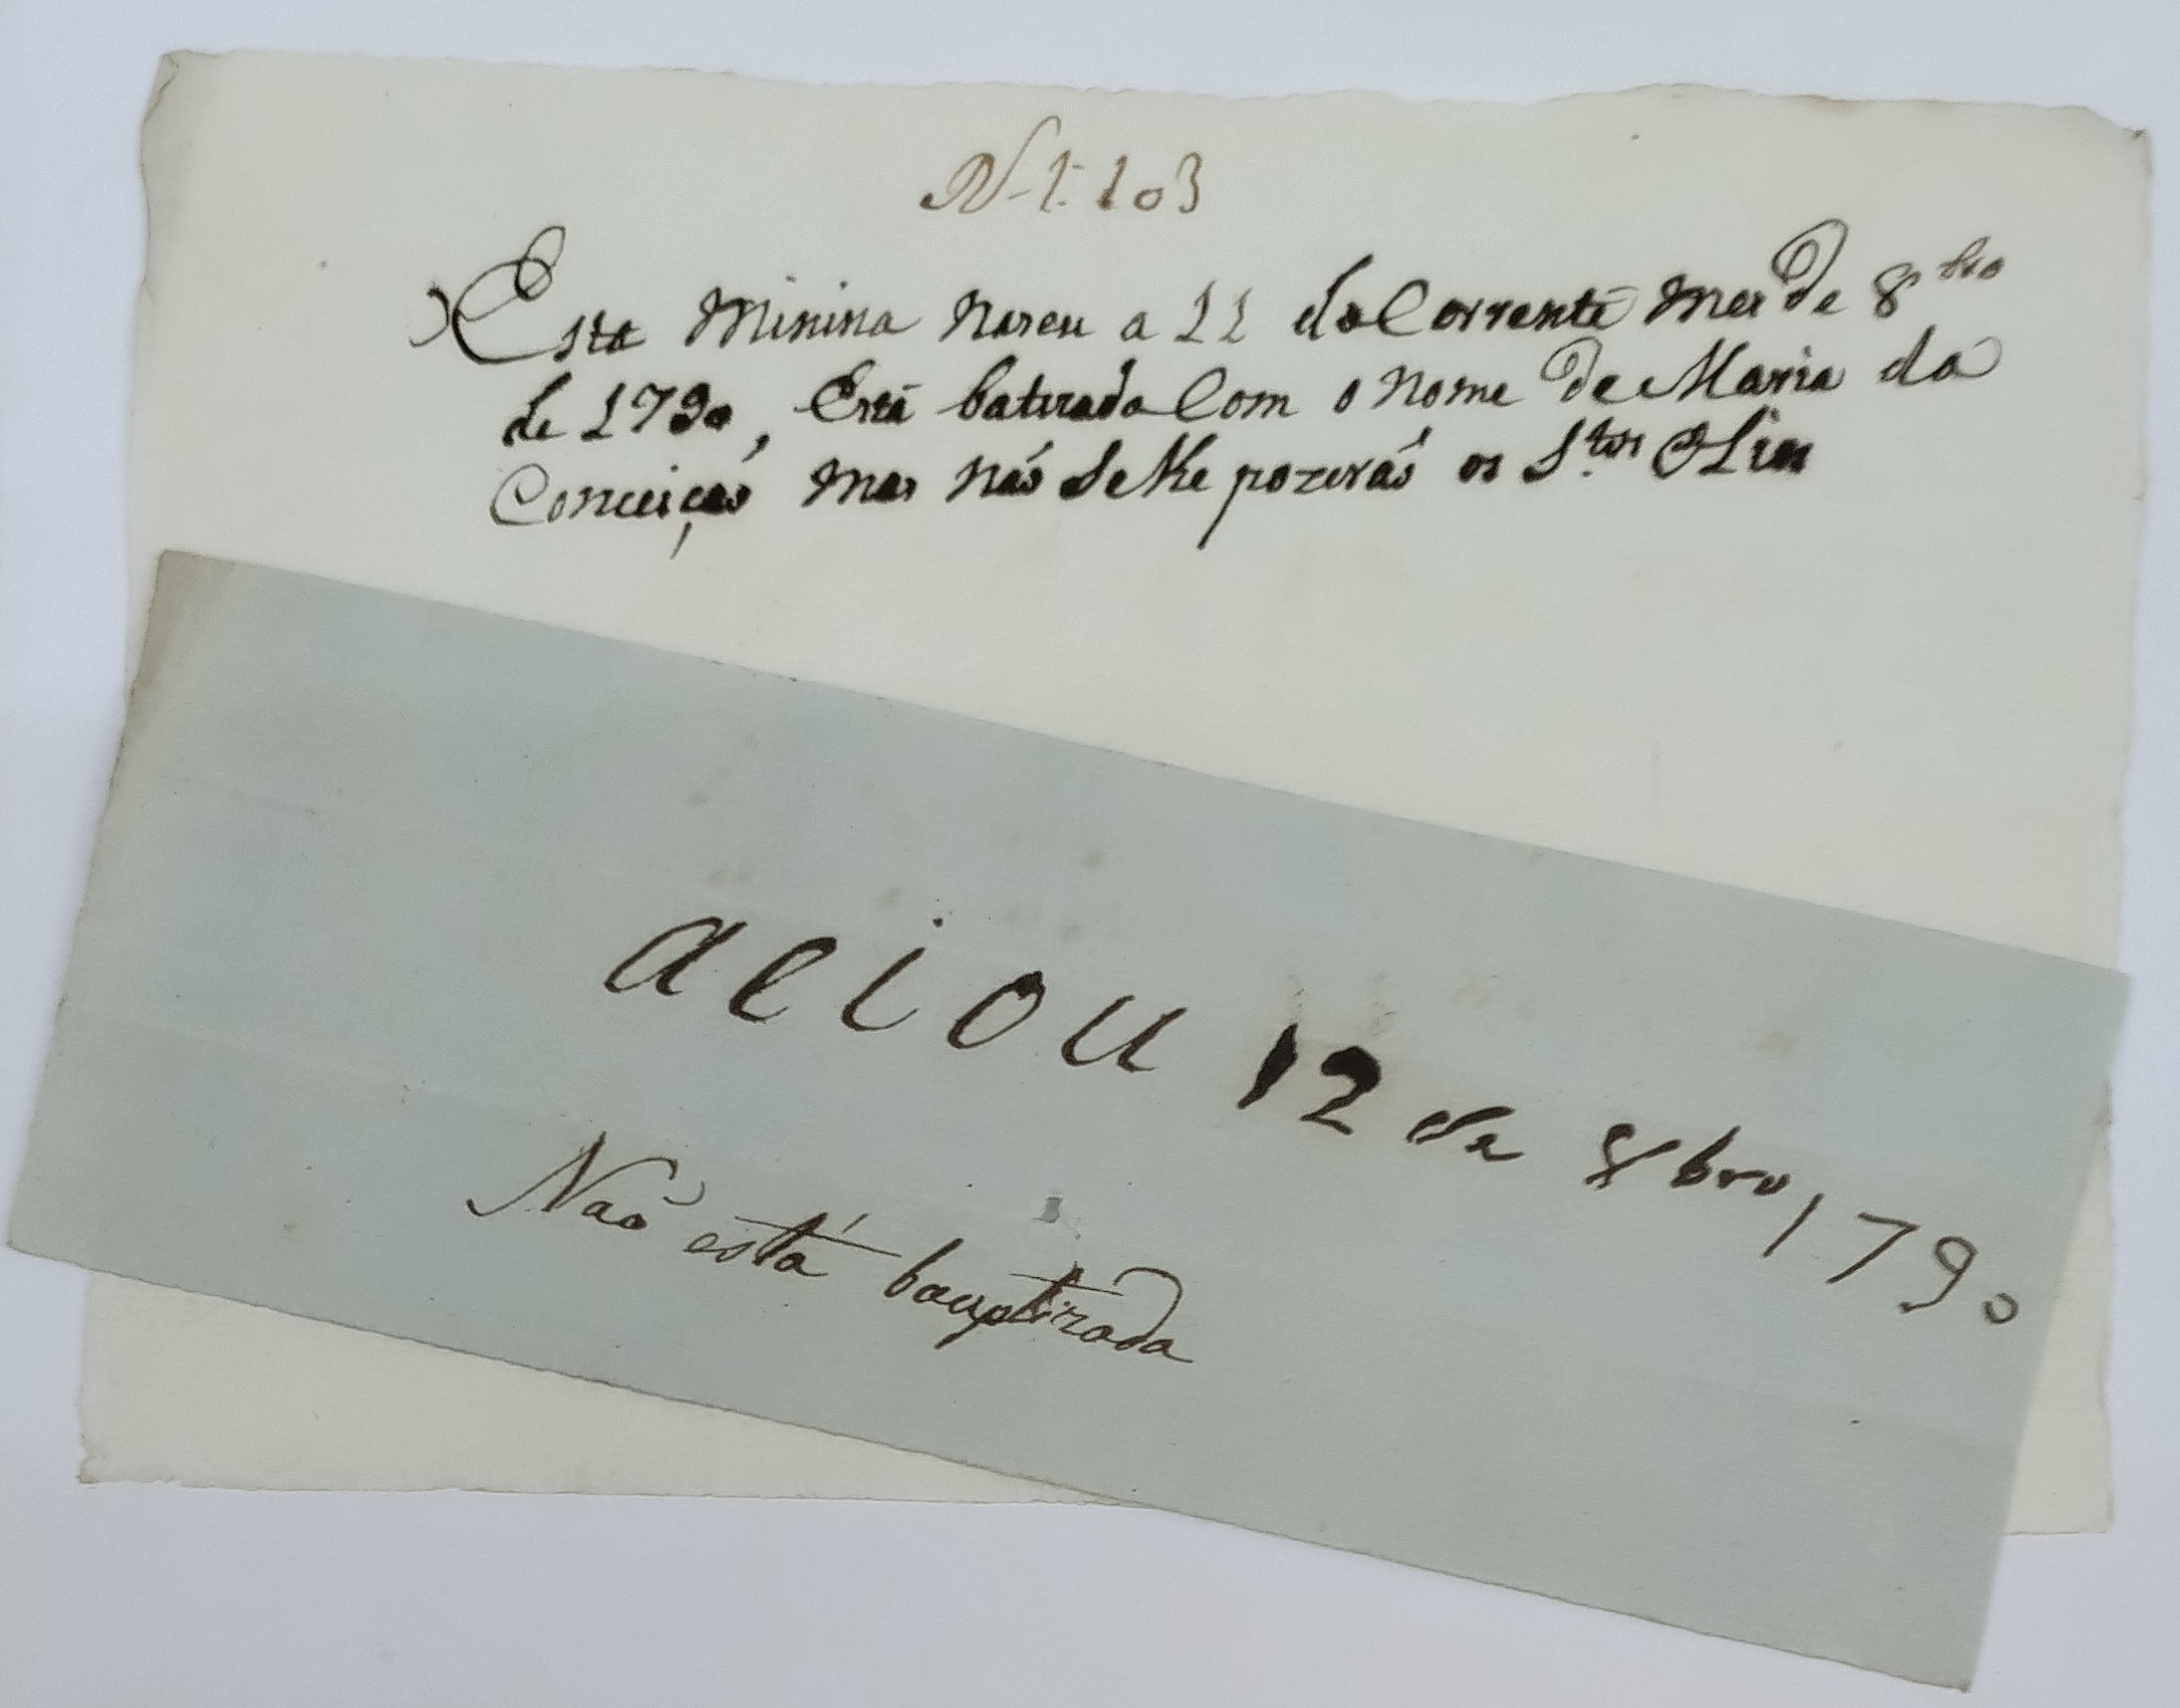 N. 1103
Esta Minina Naseu a 11 do Corrente Mes de 8bro
de 1790, Está batizada Com o Nome de Maria da
Conceiçaõ Mas Naõ Se lhe pozeraõ os S.tos Olios
a e i o u 12 de 8bro 1790
Naõ está bauptizada